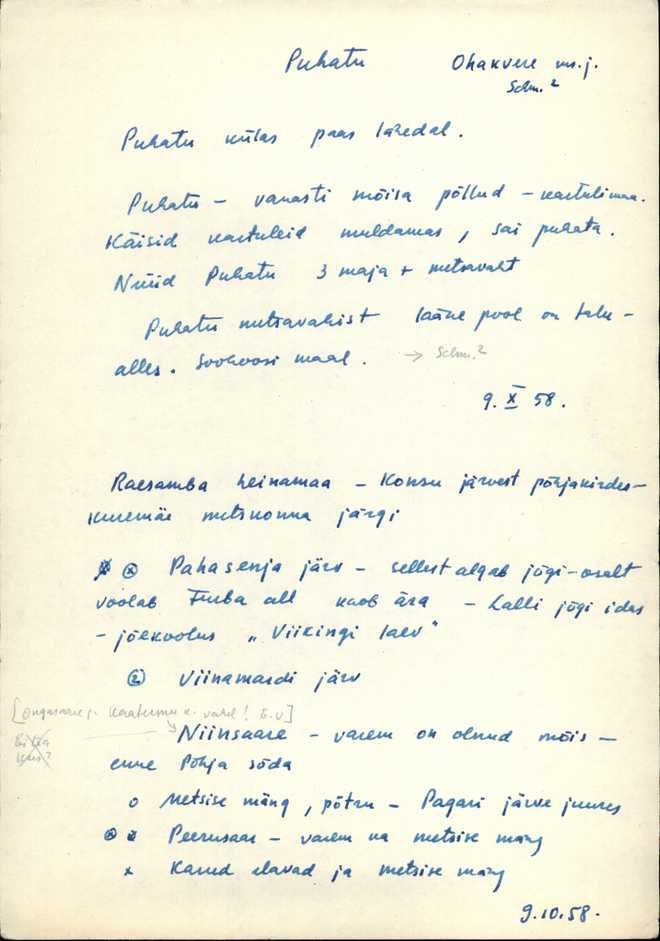 Puhatu Ohakvere ms.j.
Schm.²
Puhatu külas paas lähedal.
Puhatu – vanasti mõisa põllud – kartulimaa.
Käisid kartuleid muldamas, sai puhata.
Nüüd Puhatu 3 maja + metsavaht
Puhatu metsavahist lääne pool on talu –
alles. Soohoosi maal. → Schm.²
9. X 58.
Raesamba heinamaa – Konsu järvest põhjakirdes –
Kuremäe metskonna järgi
⊗ Pahasenja järv – sellest algab jõgi – osalt
voolab turba all kaob ära – idas
– jõekoolus „Viikingi laev"
② Viinamardi järv
[Ongassaare j. vahel! E.V]
Niinsaare – varem on olnud mõis –
enne Põhja sõda
o Metsise mäng, põtru – Pagari järve juures
Peerusaar – varem ka metsise mäng
x Karud elavad ja metsise mäng
9.10.58.